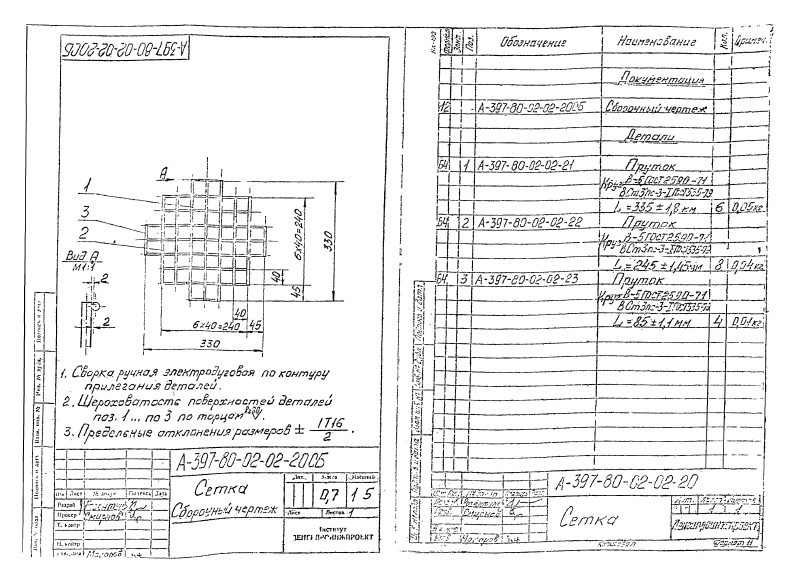 А-397-80-02-02-200СБ
А
1
3
2
Вид А
М1:1
2
2
6х40=240
330
40
45
40
6х40=240
45
330
1. Сборка ручная электродуговая по контуру
прилегания деталей.
2. Шероховатость поверхностей деталей
поз. 1 ... по 3 по торцам
3. Предельные отклонения размеров ± IT16/2.
А-397-80-02-02-200СБ
Сетка
Сборочный чертеж
Лит.
Масса
Масштаб
0,7
1 5
Лист
Листов 1
Изм Лист № докум Подпись Дата
Разраб
Провер
Т. контр
Н. контр
Институт
Поз.
Обозначение
Наименование
Кол.
Примеч.
Документация
А-397-80-02-02-200СБ Сборочный чертеж
Детали
Б4 1 А-397-80-02-02-21 Пруток
Круг В-5 ГОСТ 2590-71
ВСт3пс-3-I ГОСТ 535-79
L = 335 ± 1,8 мм 6 0,05кг
Б4 2 А-397-80-02-02-22 Пруток
Круг В-5 ГОСТ 2590-71
ВСт3пс-3-I ГОСТ 535-79
L = 245 ± 1,45мм 8 0,04кг
Б4 3 А-397-80-02-02-23 Пруток
Круг В-5 ГОСТ 2590-71
ВСт3пс-3-I ГОСТ 535-79
L = 85 ± 1,1 мм 4 0,01кг
А-397-80-02-02-20
Сетка
1 1
Копировал
Формат 11